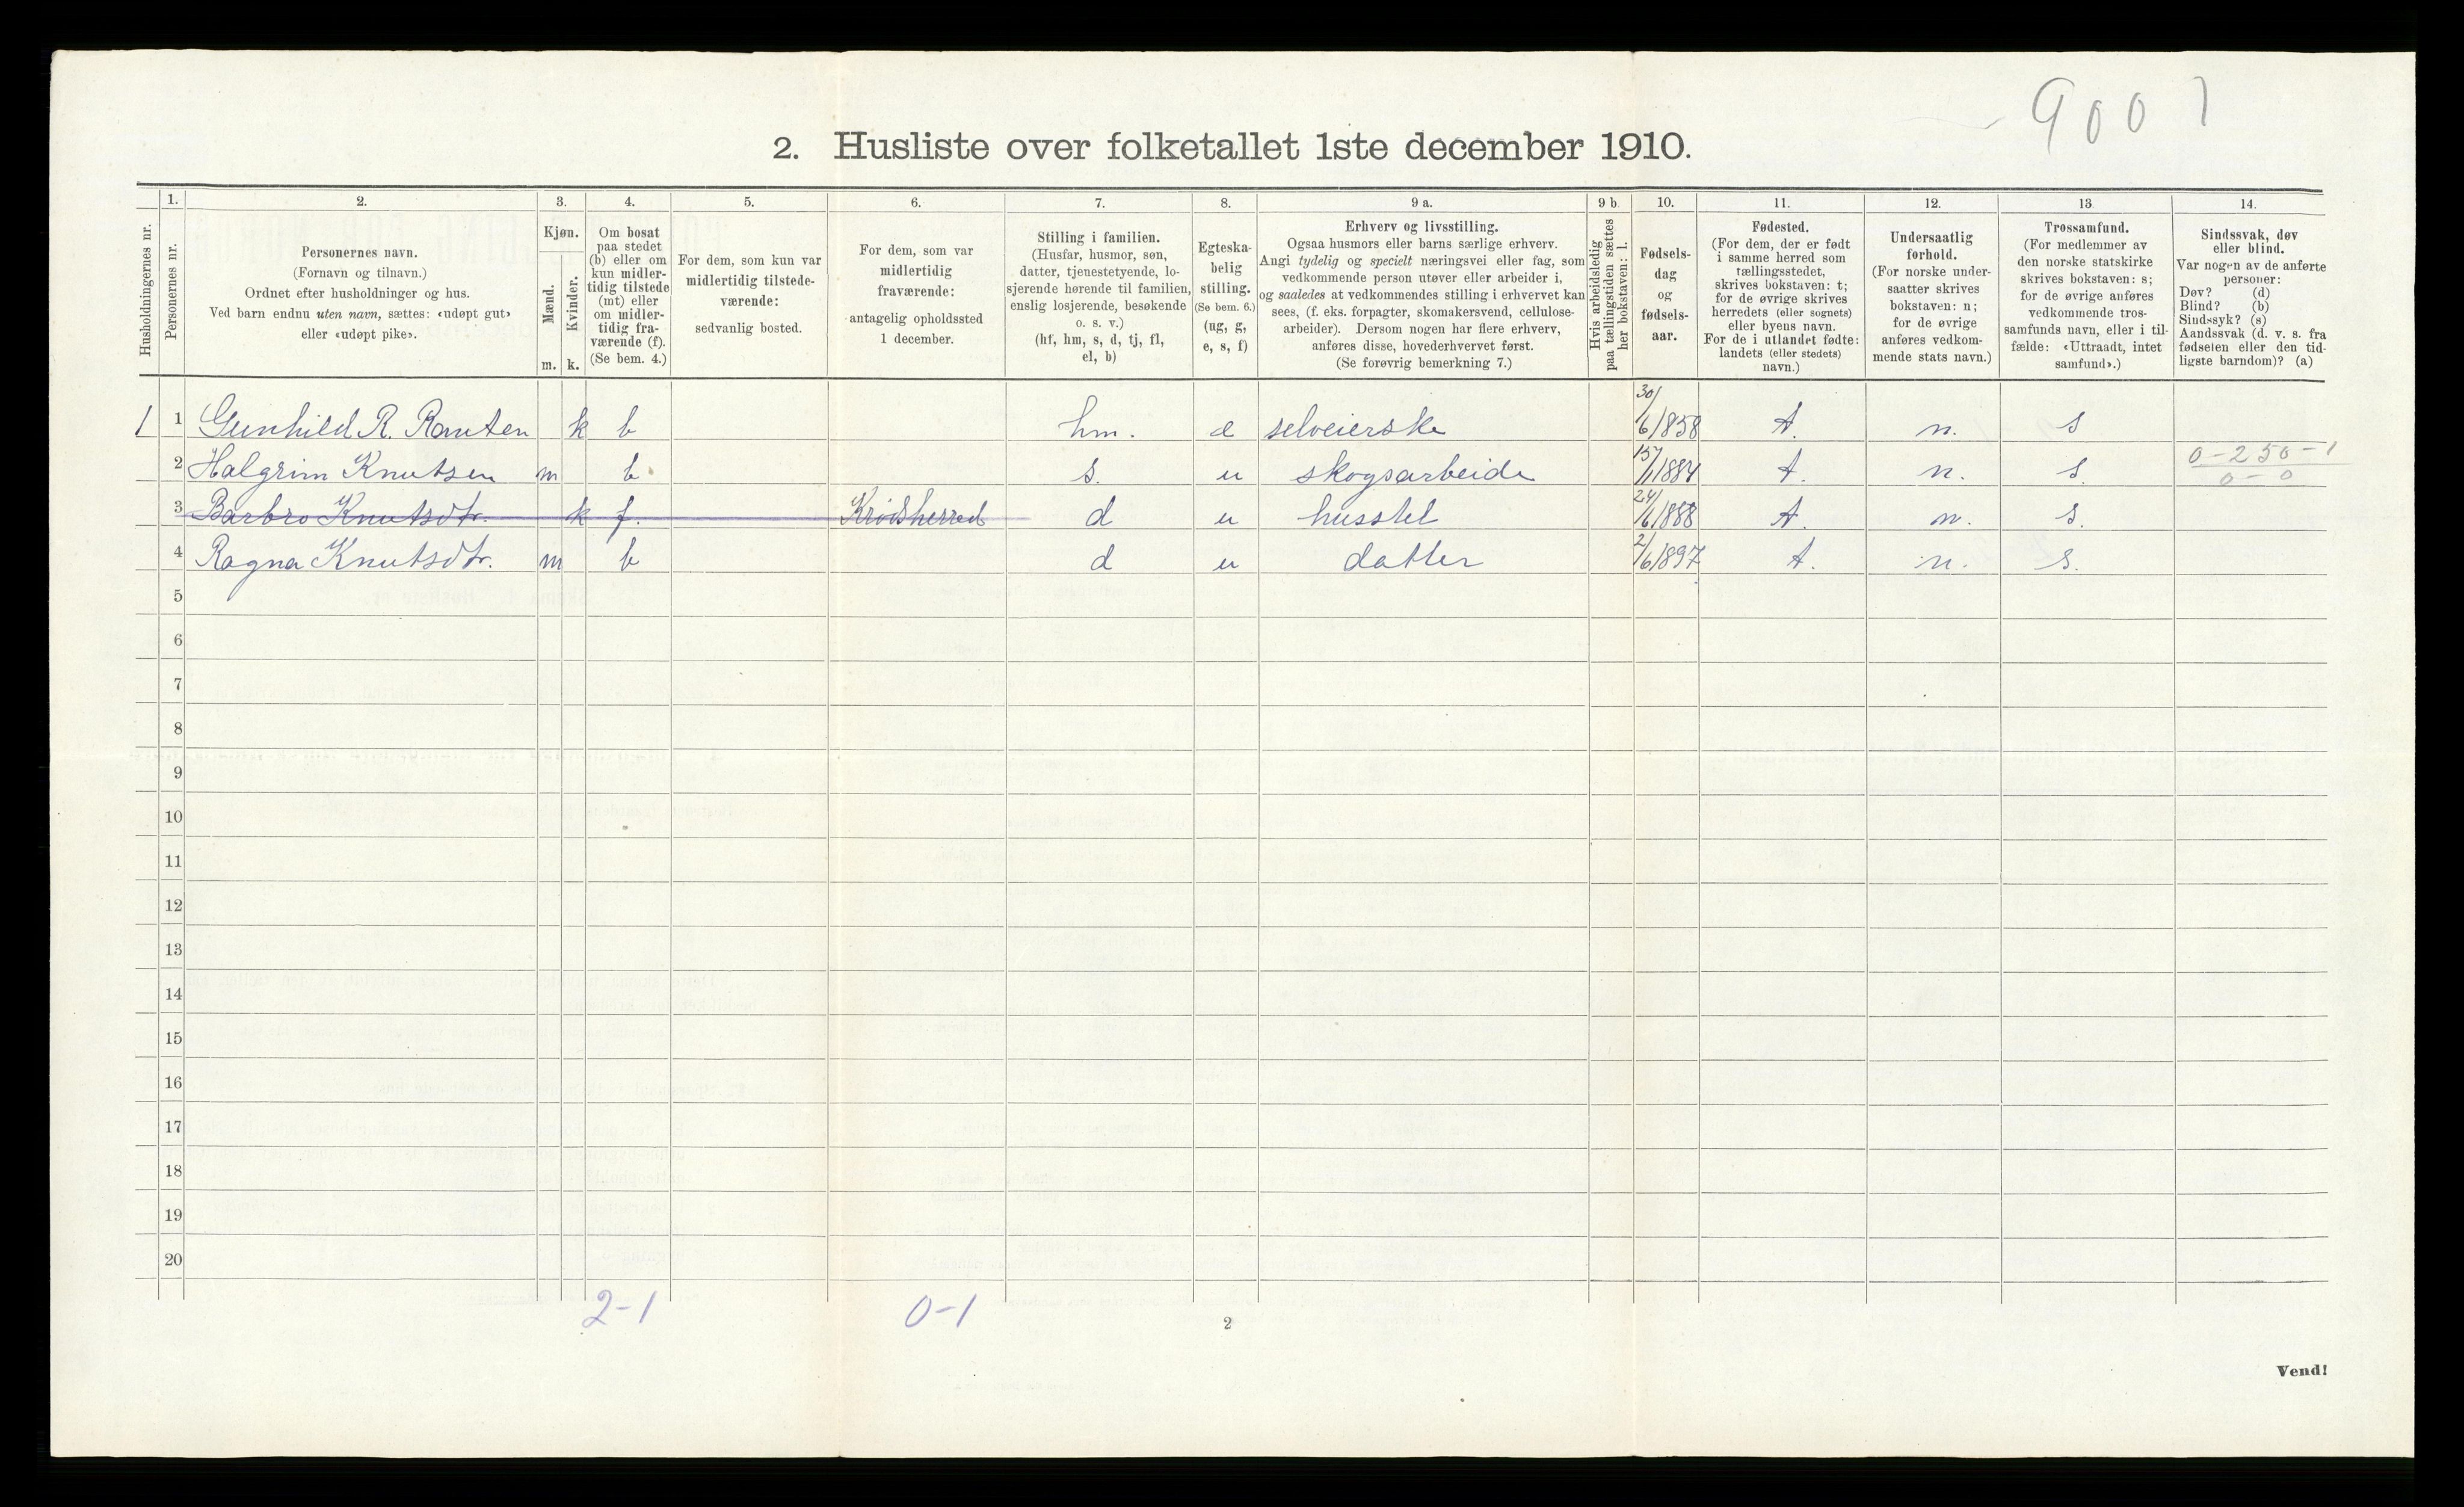 9001
2. Husliste over folketallet 1ste december 1910.
Husholdningernes nr.
1.
Personernes nr.
2.
Personernes navn.
(Fornavn og tilnavn.)
Ordnet efter husholdninger og hus.
Ved barn endnu uten navn, sættes: «udøpt gut»
eller «udøpt pike».
3.
Kjøn.
Mænd.
Kvinder.
m. k.
4.
Om bosat
paa stedet
(b) eller om
kun midler-
tidig tilstede
(mt) eller
om midler-
tidig fra-
værende (f).
(Se bem. 4.)
5.
For dem, som kun var
midlertidig tilstede-
værende:
sedvanlig bosted.
6.
For dem, som var
midlertidig
fraværende:
antagelig opholdssted
1 december.
7.
Stilling i familien.
(Husfar, husmor, søn,
datter, tjenestetyende, lo-
sjerende hørende til familien,
enslig losjerende, besøkende
o. s. v.)
(hf, hm, s, d, tj, fl,
el, b)
8.
Egteska-
belig
stilling.
(Se bem. 6.)
(ug, g,
e, s, f)
9 a.
Erhverv og livsstilling.
Ogsaa husmors eller barns særlige erhverv.
Angi tydelig og specielt næringsvei eller fag, som
vedkommende person utøver eller arbeider i,
og saaledes at vedkommendes stilling i erhvervet kan
sees, (f. eks. forpagter, skomakersvend, cellulose-
arbeider). Dersom nogen har flere erhverv,
anføres disse, hovederhvervet først.
(Se forøvrig bemerkning 7.)
9 b.
Hvis arbeidsledig
paa tællingstiden sættes
her bokstaven: l.
10.
Fødsels-
dag
og
fødsels-
aar.
11.
Fødested.
(For dem, der er født
i samme herred som
tællingsstedet,
skrives bokstaven: t;
for de øvrige skrives
herredets (eller sognets)
eller byens navn.
For de i utlandet fødte:
landets (eller stedets)
navn.)
12.
Undersaatlig
forhold.
(For norske under-
saatter skrives
bokstaven: n;
for de øvrige
anføres vedkom-
mende stats navn.)
13
Trossamfund.
(For medlemmer av
den norske statskirke
skrives bokstaven: s;
for de øvrige anføres
vedkommende tros-
samfunds navn, eller i til-
fælde: «Uttraadt, intet
samfund».)
14.
Sindssvak, døv
eller blind.
Var nogen av de anførte
personer:
Døv? (d)
Blind? (b)
Sindssyk? (s)
Aandssvak (d. v. s. fra
fødselen eller den tid-
ligste barndom)? (a)
1 1 Gunhild R. Ramten k b hm. e selveierske 30/6/1858 t. n. s
2 Halgrim Knutsen m b s. u skogsarbeide 15/1/1884 t. n. s. 0-250-1
0-0
3 Barbro Knutsdtr. k f. Krødsherred d u husstel 24/6/1888 t. n. s.
4 Ragna Knutsdtr. m b d u datter 2/6/1897 t. n. s.
5
6
7
8
9
10
11
12
13
14
15
16
17
18
19
20
2-1 0-1
2
Vend!